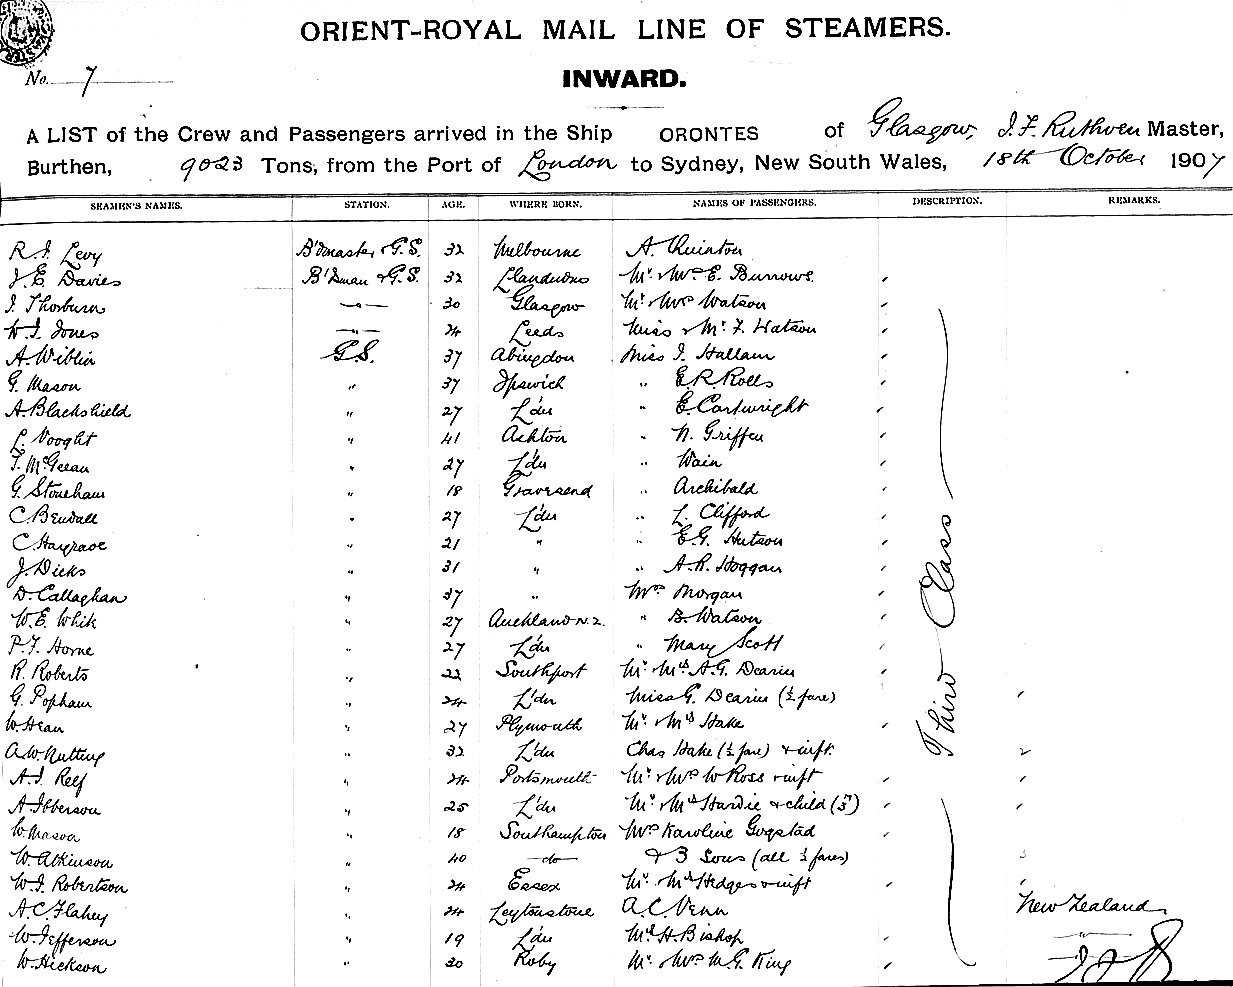 ORIENT-ROYAL MAIL LINE OF STEAMERS.
No. 7
INWARD.
A LIST of the Crew and Passengers arrived in the Ship ORONTES of Glasgow, J. F. Ruthven Master,
Burthen, 9023 Tons, from the Port of London to Sydney, New South Wales, 18th October 1907
SEAMEN'S NAMES. STATION. AGE. WHERE BORN. NAMES OF PASSENGERS. DESCRIPTION. REMARKS.
R. J. Levy B'dmaster & G.S. 32 Melbourne A. Quinton
J. E. Davies B'dman & G.S. 32 Llandudno Mr. & Mrs E. Burrows
J. Thorburn —"— 30 Glasgow Mr. & Mrs Watson
W. J. Jones —"— 24 Leeds Miss & Mr. F. Watson
A. Wiblin G.S. 37 Abingdon Miss J. Hallam
G. Mason " 37 Ipswich " E. R. Rolls
A. Blackshield " 27 L'dn " E. Cartwright
L. Vooght " 41 Ashton " N. Griffen
T. McGeean " 27 L'dn " Wain
G. Stoneham " 18 Gravesend " Archibald
C. Bendall " 27 L'dn " L. Clifford
C. Hargrave " 21 " " E. G. Hutson
J. Dicks " 31 " " A. R. Hoggan
D. Callaghan " 37 " Mrs Morgan
W. E. Whik " 27 Auckland N.Z. " B. Watson
P. F. Horne " 27 L'dn " Mary Scott
R. Roberts " 22 Southport Mr. Mrs A. G. Dearin
G. Popham " 24 L'dn Miss G. Dearin (½ fare)
W. Hean " 27 Plymouth Mr. & Mrs Hake
A. W. Nutting " 32 L'dn Chas Hake (½ fare) & inft.
A. J. Relf " 24 Portsmouth Mr. & Mrs W Ross & inft
A. Ibberson " 25 L'dn Mr. & Mrs Hardie & child
W. Mason " 18 Southampton Mrs Karoline Gogstad
W. Atkinson " 40 —do— & 3 Sons (all ½ fares)
W. J. Robertson " 24 Essex Mr. & Mrs Hedges & inft
A. C. Flahey " 24 Leytonstone A. C. Venn New Zealand
W. Jefferson " 19 L'dn Mrs H. Bishop —"—
W. Hickson " 30 Roby Mr. & Mrs M. G. King
Third Class